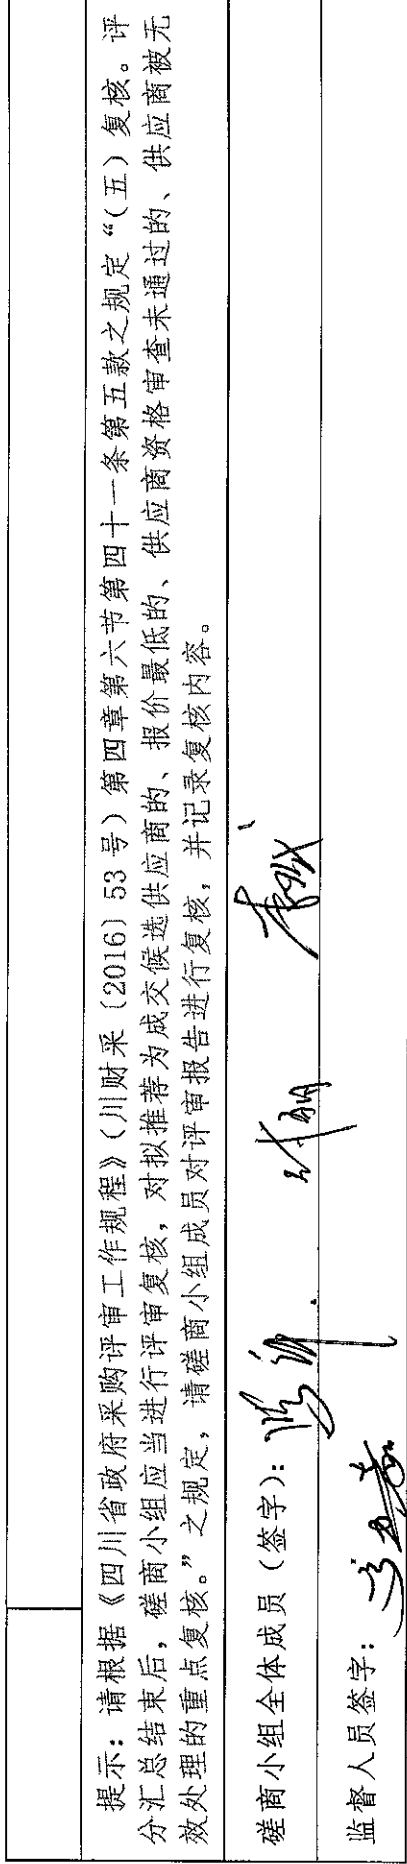 提示：请根据《四川省政府采购评审工作规程》（川财采〔2016〕53号）第四章第六节第四十一条第五款之规定“（五）复核。评
分汇总结束后，磋商小组应当进行评审复核，对拟推荐为成交候选供应商的、报价最低的、供应商资格审查未通过的、供应商被无
效处理的重点复核。”之规定，请磋商小组成员对评审报告进行复核，并记录复核内容。
磋商小组全体成员（签字）：
监督人员签字：